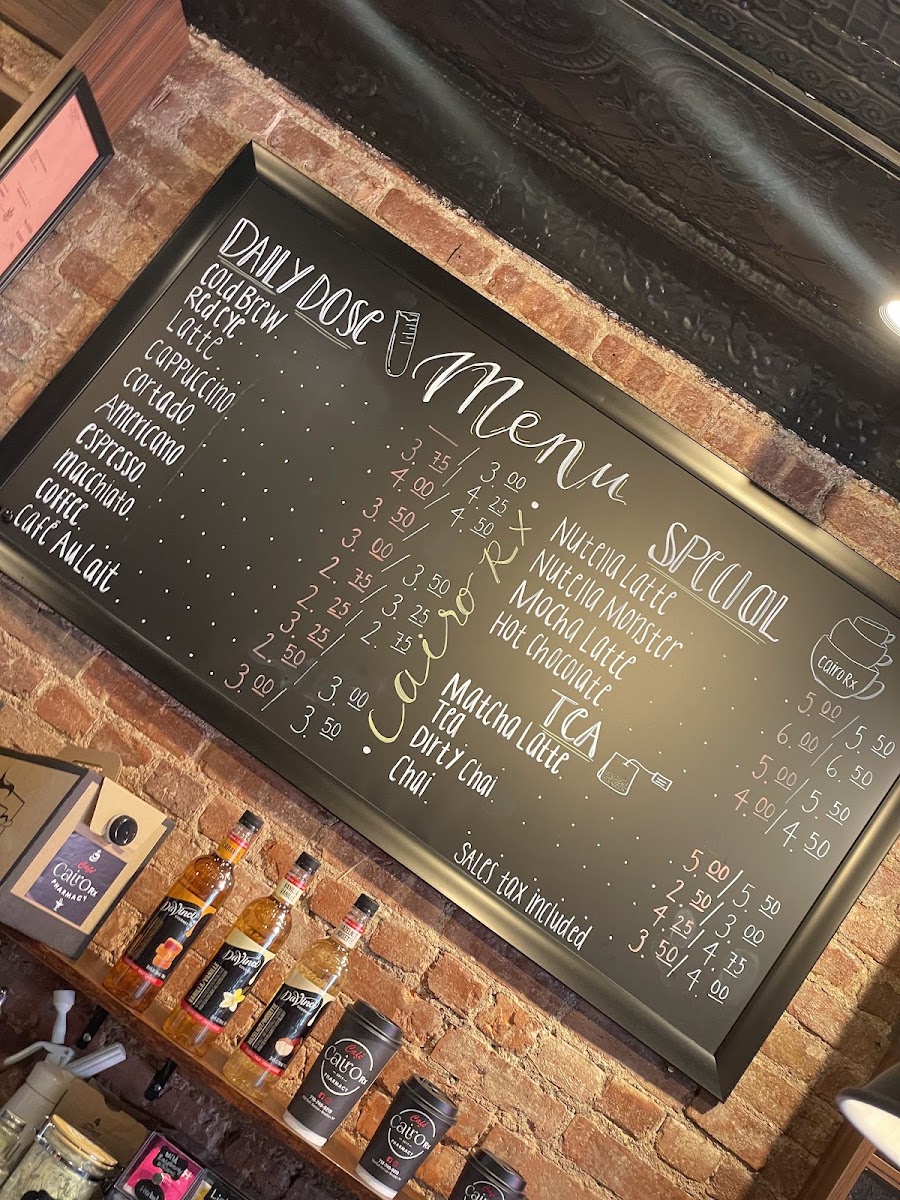 DAILY DOSE
Cold Brew — / 3.00
Red Eye 3.75 / 4.25
Latte 4.00 / 4.50
Cappuccino 3.50 /
Cortado 3.00 / 3.50
Americano 2.75 / 3.25
espresso 2.25 / 2.75
macchiato 3.25
coffee 2.50 / 3.00
Café Au Lait 3.00 / 3.50
Menu
Cairo Rx
SPECIAL
Cairo Rx
Nutella Latte 5.00 / 5.50
Nutella Monster 6.00 / 6.50
Mocha Latte 5.00 / 5.50
Hot Chocolate 4.00 / 4.50
TEA
Matcha Latte 5.00 / 5.50
Tea 2.50 / 3.00
Dirty Chai 4.25 / 4.75
Chai 3.50 / 4.00
SALES tax included
Café
Cairo Rx
PHARMACY
DaVinci
DaVinci
DaVinci
Café
Cairo Rx
PHARMACY
Café
Cairo Rx
PHARMACY
Cairo Rx